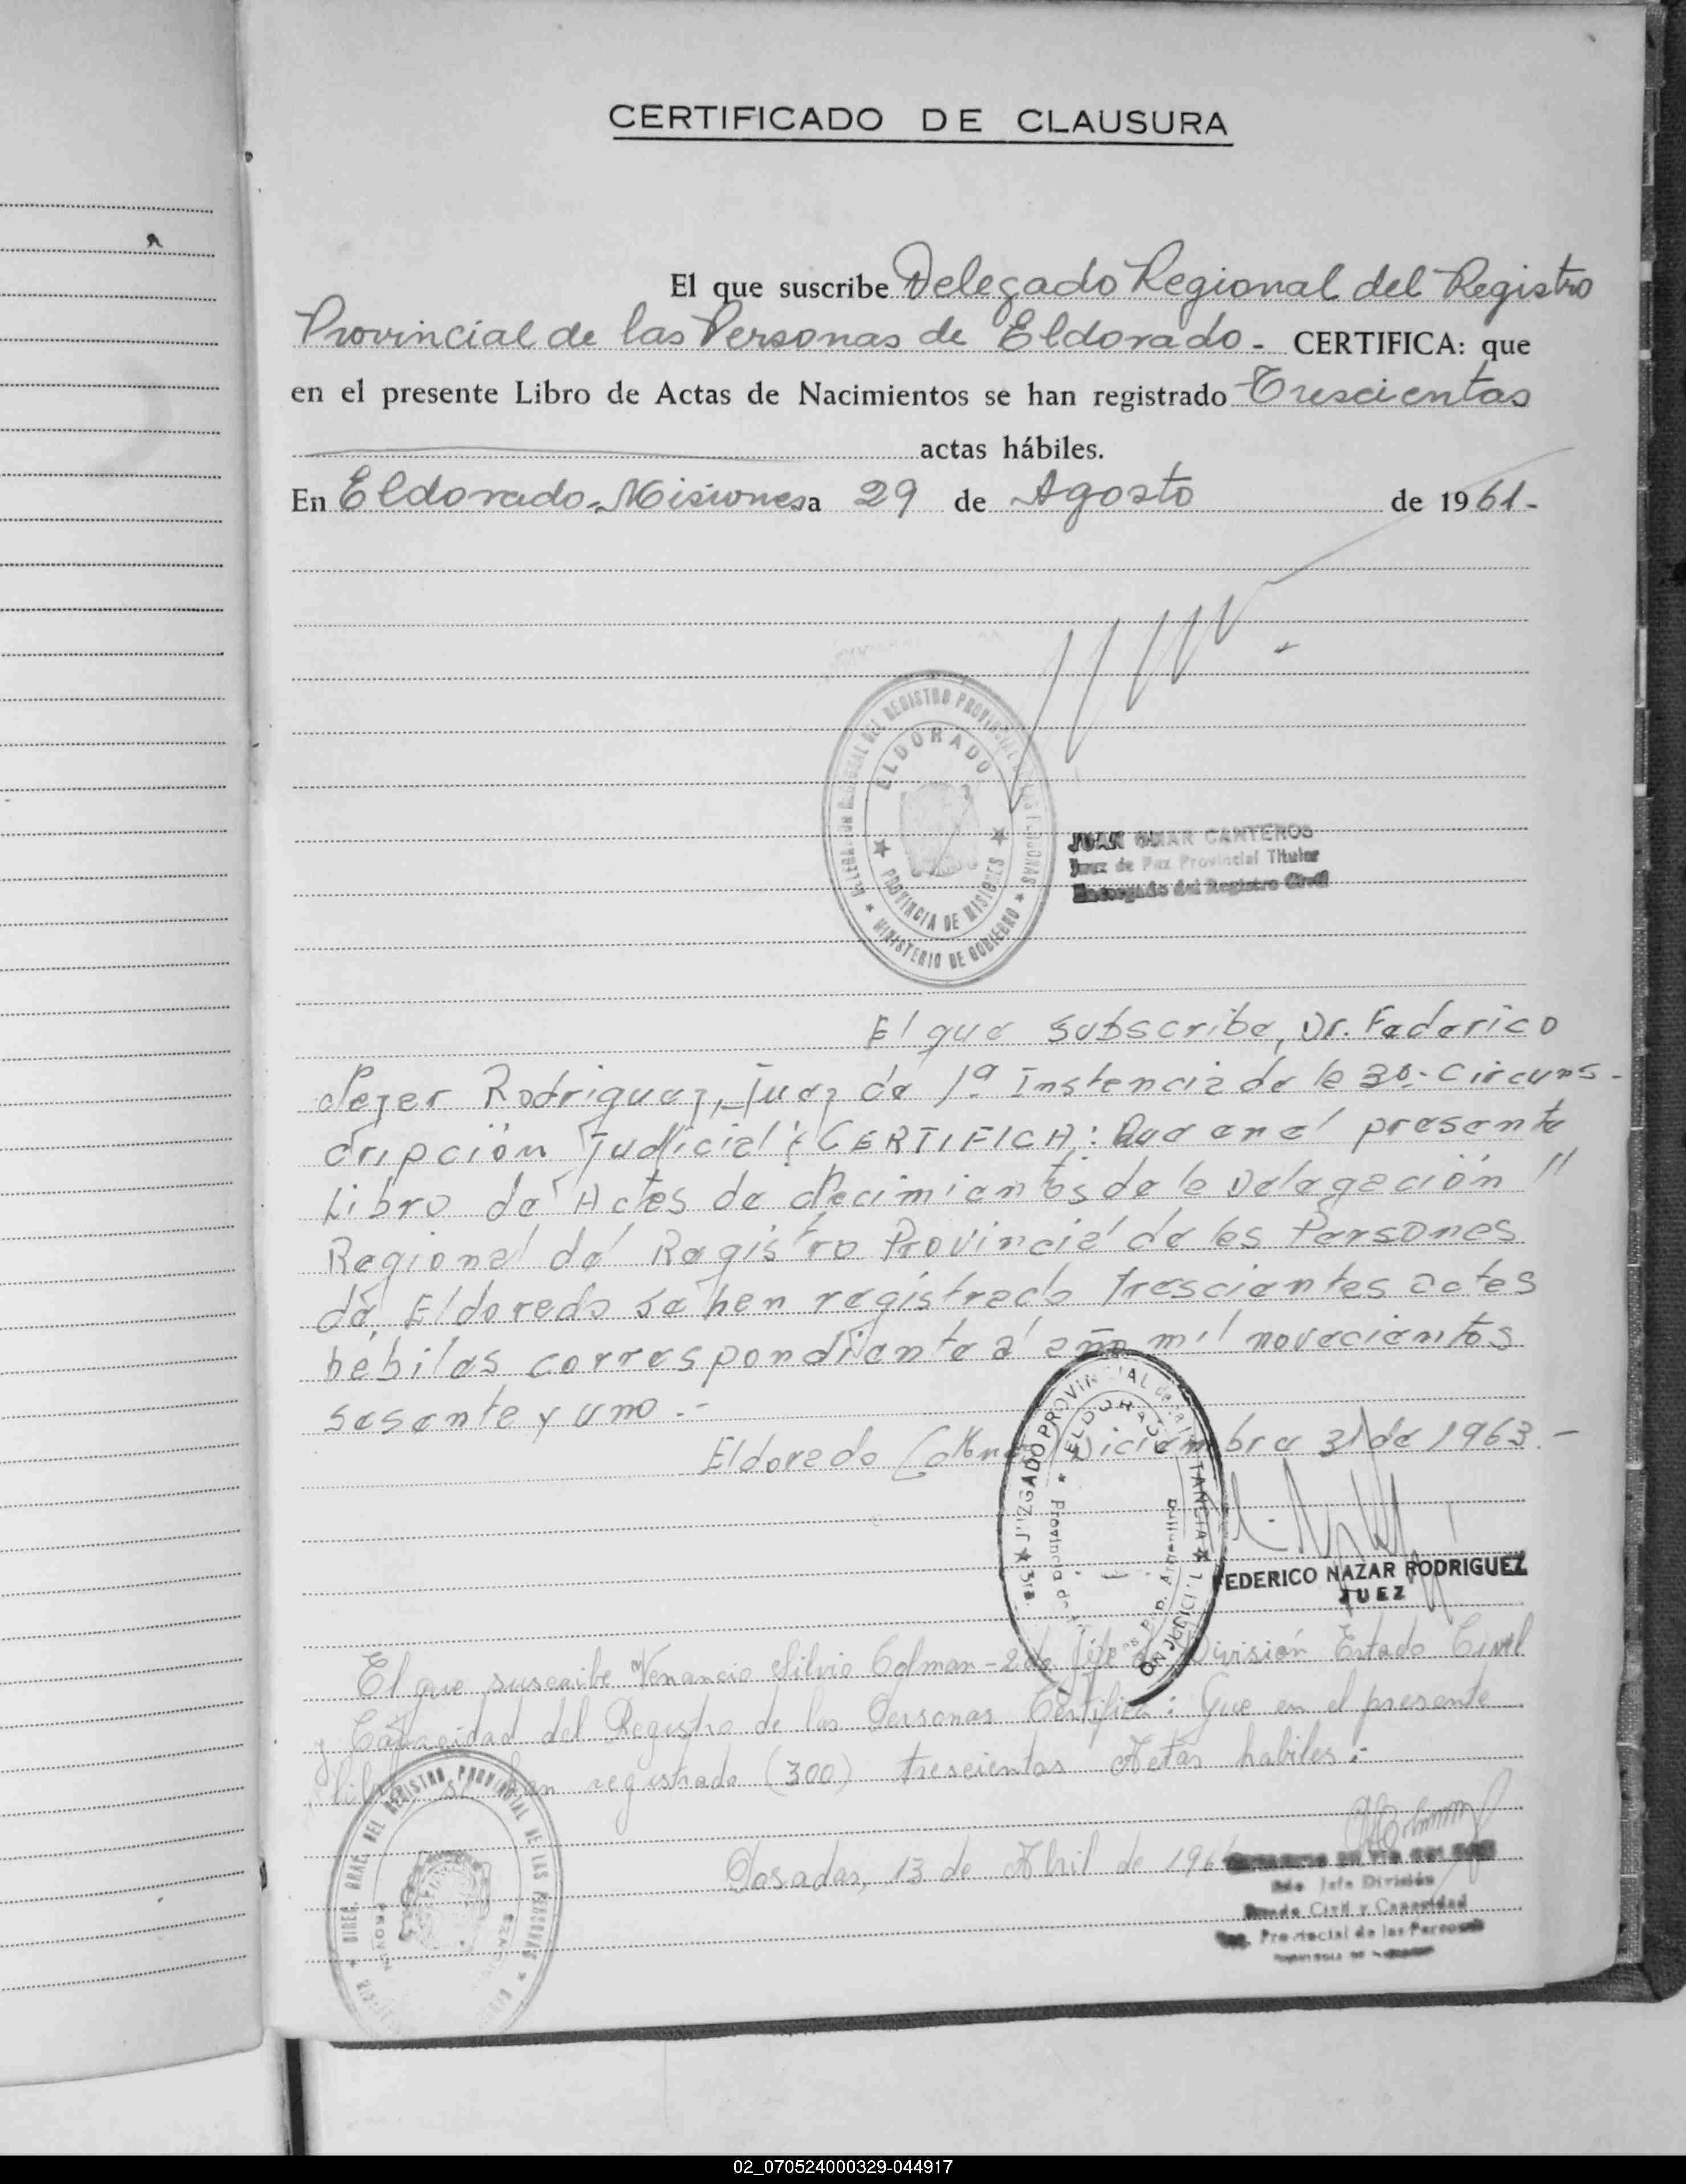 CERTIFICADO DE CLAUSURA
El que suscribe Delegado Regional del Registro
Provincial de las Personas de Eldorado - CERTIFICA: que
en el presente Libro de Actas de Nacimientos se han registrado Trescientas
actas hábiles.
En Eldorado - Misiones a 29 de Agosto de 1961-
DELEGACION REGIONAL DEL REGISTRO PROVINCIAL DE LAS PERSONAS
ELDORADO
PROVINCIA DE MISIONES
MINISTERIO DE GOBIERNO
JUAN OMAR CANTEROS
Juez de Paz Provincial Titular
Encargado del Registro Civil
El que subscribe, Dr. Federico
Nazar Rodriguez, Juez de 1ª Instancia de la 3ª Circuns-
cripción Judicial; CERTIFICA: Que en el presente
Libro de Actas de Nacimientos de la Delegación "
Regional del Registro Provincial de las Personas
de, Eldorado se han registrado trescientas actas
habiles correspondiente al año mil novecientos
sesenta y uno.-
Eldorado, Diciembre 31 de 1963.-
JUZGADO PROVINCIAL de 1ª INSTANCIA
ELDORADO
Provincia de
3ra.
FEDERICO NAZAR RODRIGUEZ
JUEZ
El que suscribe Venancio Silvio Colman - 2do Jefe de División Estado Civil
y Capacidad del Registro de las Personas Certifica: Que en el presente
libro se han registrado (300) trescientas Actas habiles.-
Posadas, 13 de Abril de 196
2do Jefe División
Estado Civil y Capacidad
Reg. Provincial de las Personas
DIREC. GRAL. DEL REGISTRO PROVINCIAL DE LAS PERSONAS
02_070524000329-044917